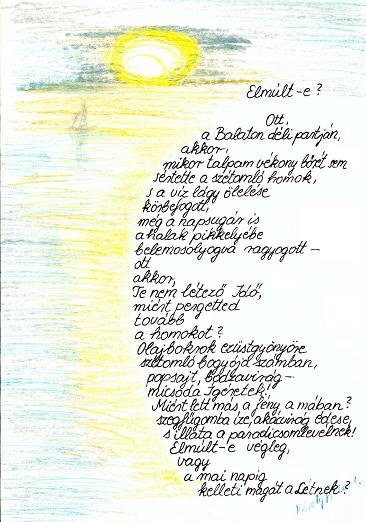 Elmúlt-e?
Ott,
a Balaton déli partján,
akkor,
mikor talpam vékony bőrét sem
sértette a szétomló homok,
s a víz lágy ölelése
körbefogott,
még a napsugár is
a halak pikkelyébe
belemosolyogva ragyogott –
ott
akkor,
Te nem létező Idő,
miért pergetted
tovább
a homokot?
Olajbokrok ezüstgyöngyöre
szétomló bogyójá számban,
papsajt, bodzavirág –
micsoda Ígéretek!,
Miért lett más a fény a mában?
szegfűgomba íze, akácvirág édese,
s illata a paradicsomlevelnek!
Elmúlt-e végleg,
vagy
a mai napig
kelleti magát a Létnek?